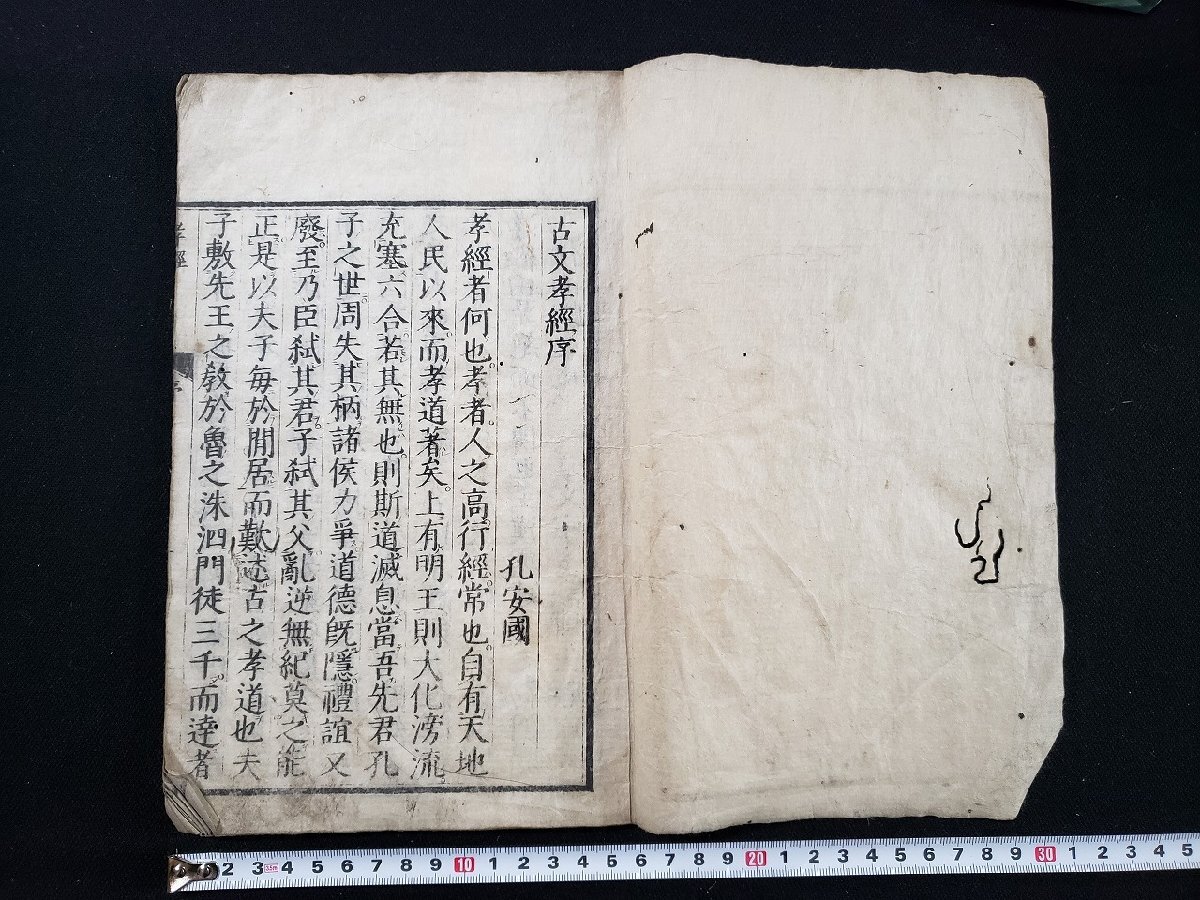 古文孝經序
孔安國
孝經者何也孝者人之高行經常也自有天地
人民以來而孝道著矣上有明王則大化滂流
充塞六合若其無也則斯道滅息當吾先君孔
子之世周失其柄諸侯力爭道德既隱禮誼又
廢至乃臣弑其君子弑其父亂逆無紀莫之能
正是以夫子每於閒居而歎述古之孝道也夫
子敷先王之教於魯之洙泗門徒三千而達者
孝經
2 3 3.5m 4 5 6 7 8 9 10 1 2 3 4 5 6 7 8 9 20 1 2 3 4 5 6 7 8 9 30 1 2 3 4 5